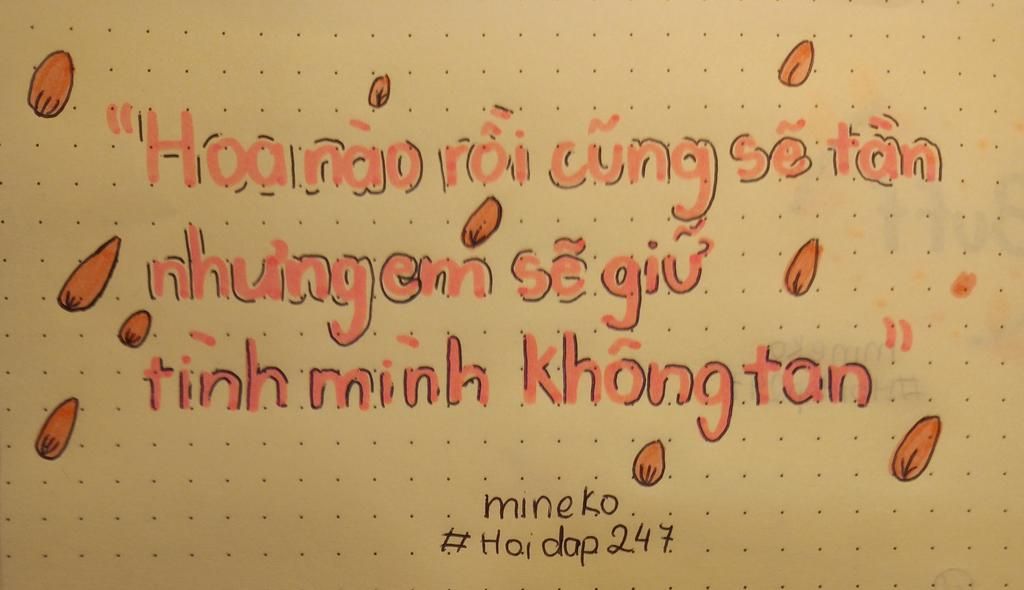 "Hoa nào rồi cũng sẽ tàn
nhưng em sẽ giữ
tình mình không tan"
mineko
#Hoidap247